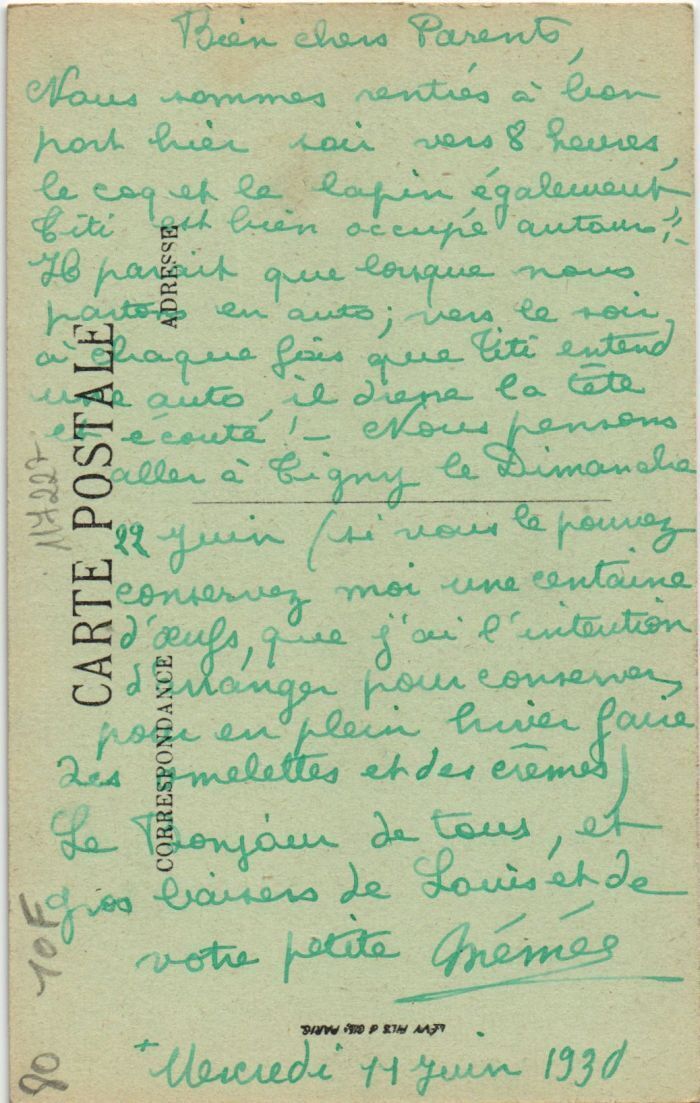 Bien chers Parents,
Nous sommes rentrés à bon
port hier soir vers 8 heures,
le coq et le lapin également,
Titi est bien occupé autour!!-
Il parait que lorsque nous
partons en auto; vers le soir,
à chaque fois que Titi entend
une auto, il dresse la tête
et écoute! - Nous pensons
aller à Tigny le Dimanche
22 Juin (si vous le pouvez
conservez moi une centaine
d'œufs, que j'ai l'intention
d'arranger pour conserver,
pour en plein hiver faire
des omelettes et des crèmes)
Le Bonjour de tous, et
gros baisers de Louis et de
votre petite Mémée
Mercredi 11 Juin 1930
CARTE POSTALE
ADRESSE
CORRESPONDANCE
LÉVY FILS & CIE, PARIS
117227
10F
80